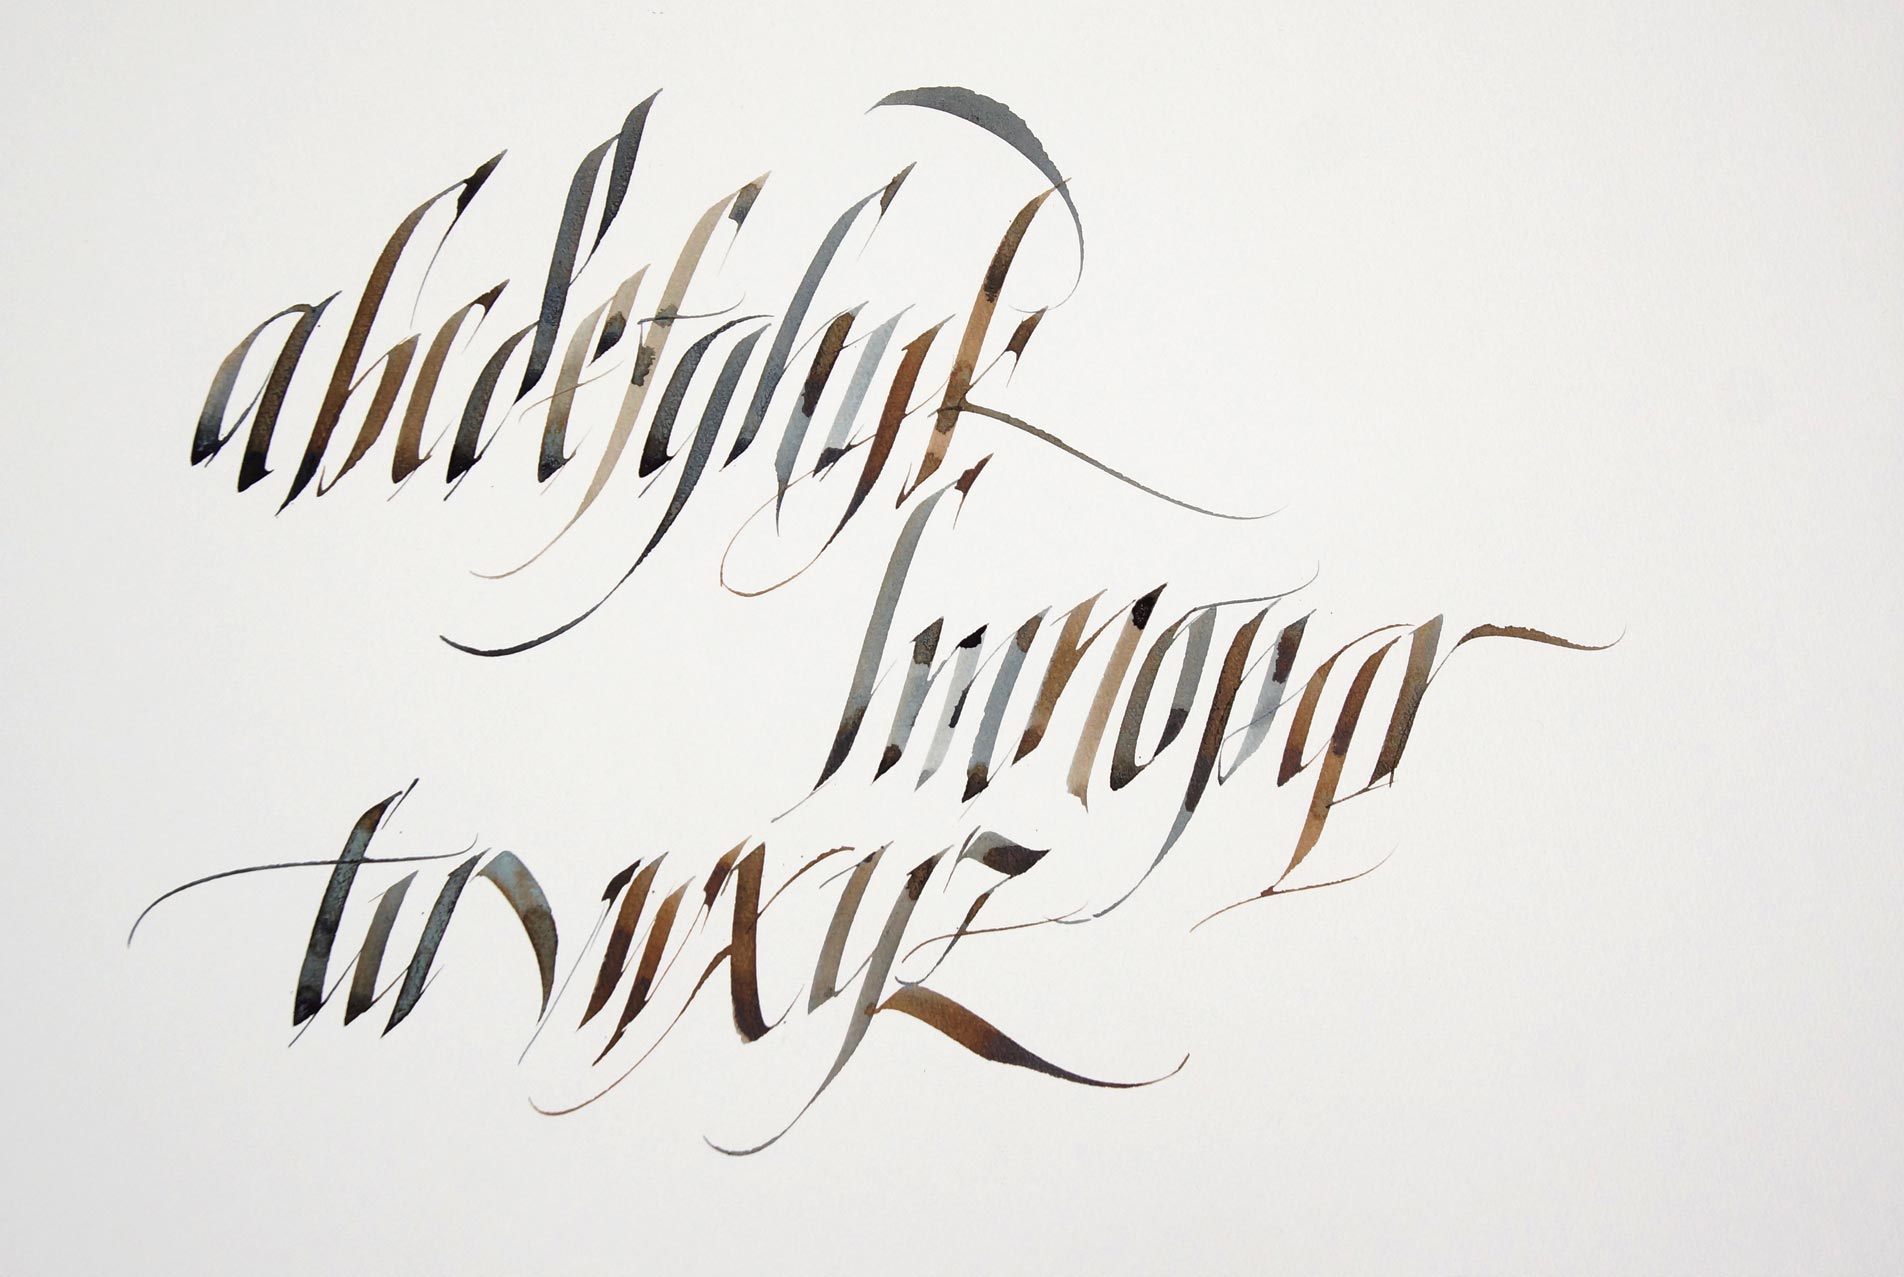 abcdefghijk
lmnopqr
tuvwxyz